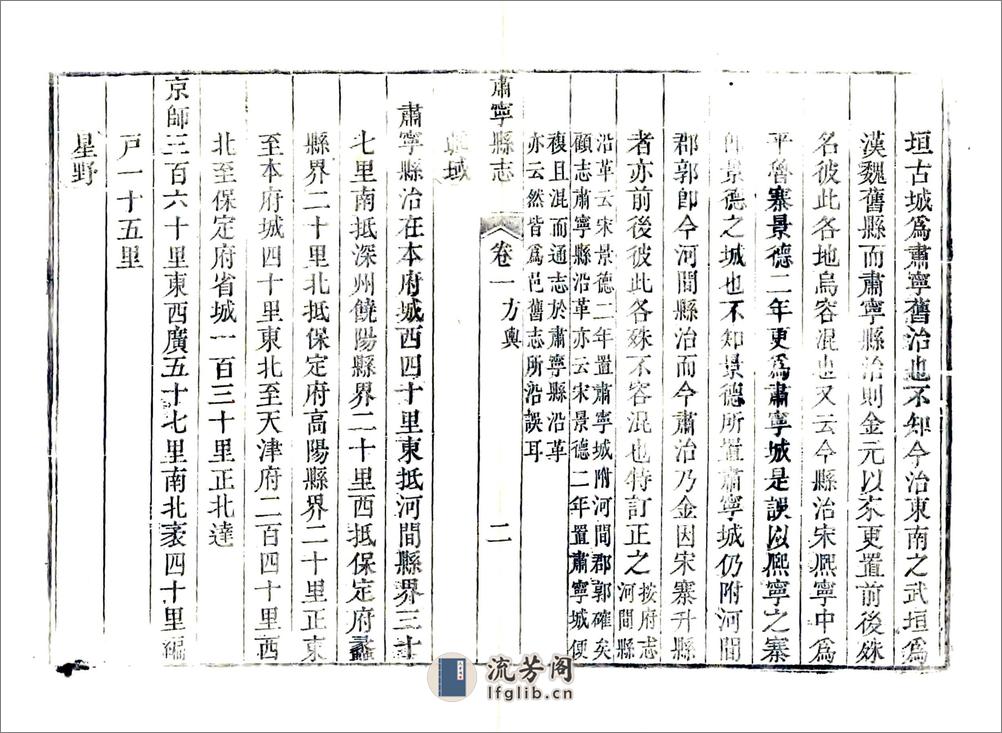 垣古城爲肅寧舊治也不知今治東南之武垣爲
漢魏舊縣而肅寧縣治則金元以來更置前後殊
名彼此各地烏容混也又云今縣治宋熙寧中爲
平虜寨景德二年更爲肅寧城是誤以熙寧之寨
卽景德之城也不知景德所置肅寧城仍附河間
郡郭卽今河間縣治而今肅治乃金因宋寨升縣
者亦前後彼此各殊不容混也特訂正之
按府志
河間縣
沿革云宋景德二年置肅寧城附河間郡郭確矣
顧志肅寧縣沿革亦云宋景德二年置肅寧城便
複且混而通志於肅寧縣沿革
亦云然皆爲邑舊志所沿誤耳
肅寧縣志
卷一 方輿
二
域
肅寧縣治在本府城西四十里東抵河間縣界三十
七里南抵深州饒陽縣界二十里西抵保定府蠡
縣界二十里北抵保定府高陽縣界二十里正東
至本府城四十里東北至天津府二百四十里西
北至保定府省城一百三十里正北達
京師三百六十里東西廣五十七里南北袤四十里編
戸一十五里
星野
流芳阁
lfglib.cn